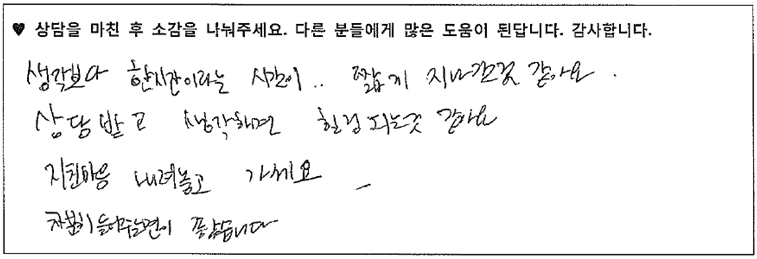 ♥ 상담을 마친 후 소감을 나눠주세요. 다른 분들에게 많은 도움이 된답니다. 감사합니다.
생각보다 한시간이라는 시간이.. 짧게 지나간것 같아요.
상담 받고 생각하면 힐링 되는것 같아요
지친마음 내려놓고 가세요
차분히 들어주는면이 좋았습니다